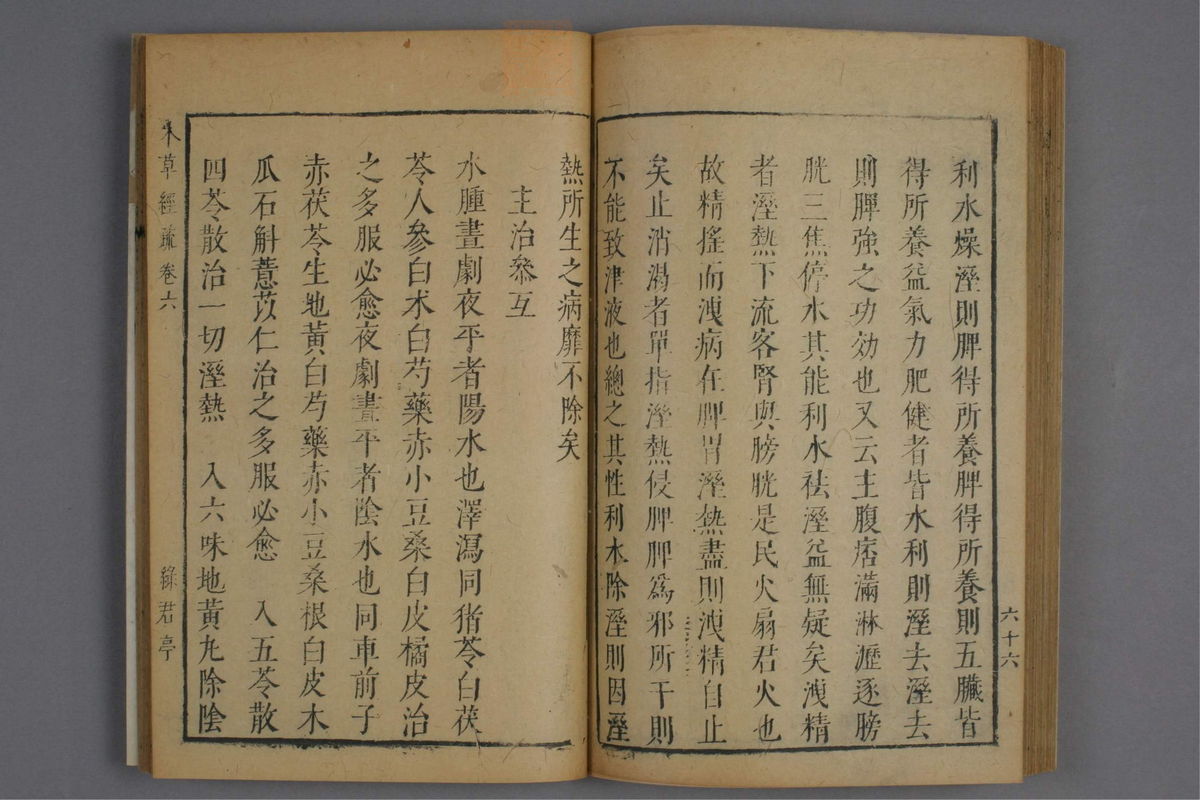 利水燥溼則脾得所養脾得所養則五臟皆
得所養益氣力肥健者皆水利則溼去溼去
則脾強之功効也又云主腹痞滿淋瀝逐膀
胱三焦停水其能利水祛溼益無疑矣洩精
者溼熱下流客腎與膀胱是民火扇君火也
故精搖而洩病在脾胃溼熱盡則洩精自止
矣止消渴者單指溼熱侵脾脾爲邪所干則
不能致津液也總之其性利水除溼則因溼
六十六
熱所生之病靡不除矣
主治叅互
水腫晝劇夜平者陽水也澤瀉同猪苓白茯
苓人參白朮白芍藥赤小豆桑白皮橘皮治
之多服必愈夜劇晝平者陰水也同車前子
赤茯苓生地黃白芍藥赤小豆桑根白皮木
瓜石斛薏苡仁治之多服必愈 入五苓散
四苓散治一切溼熱 入六味地黃丸除陰
本草經疏 卷六 綠君亭